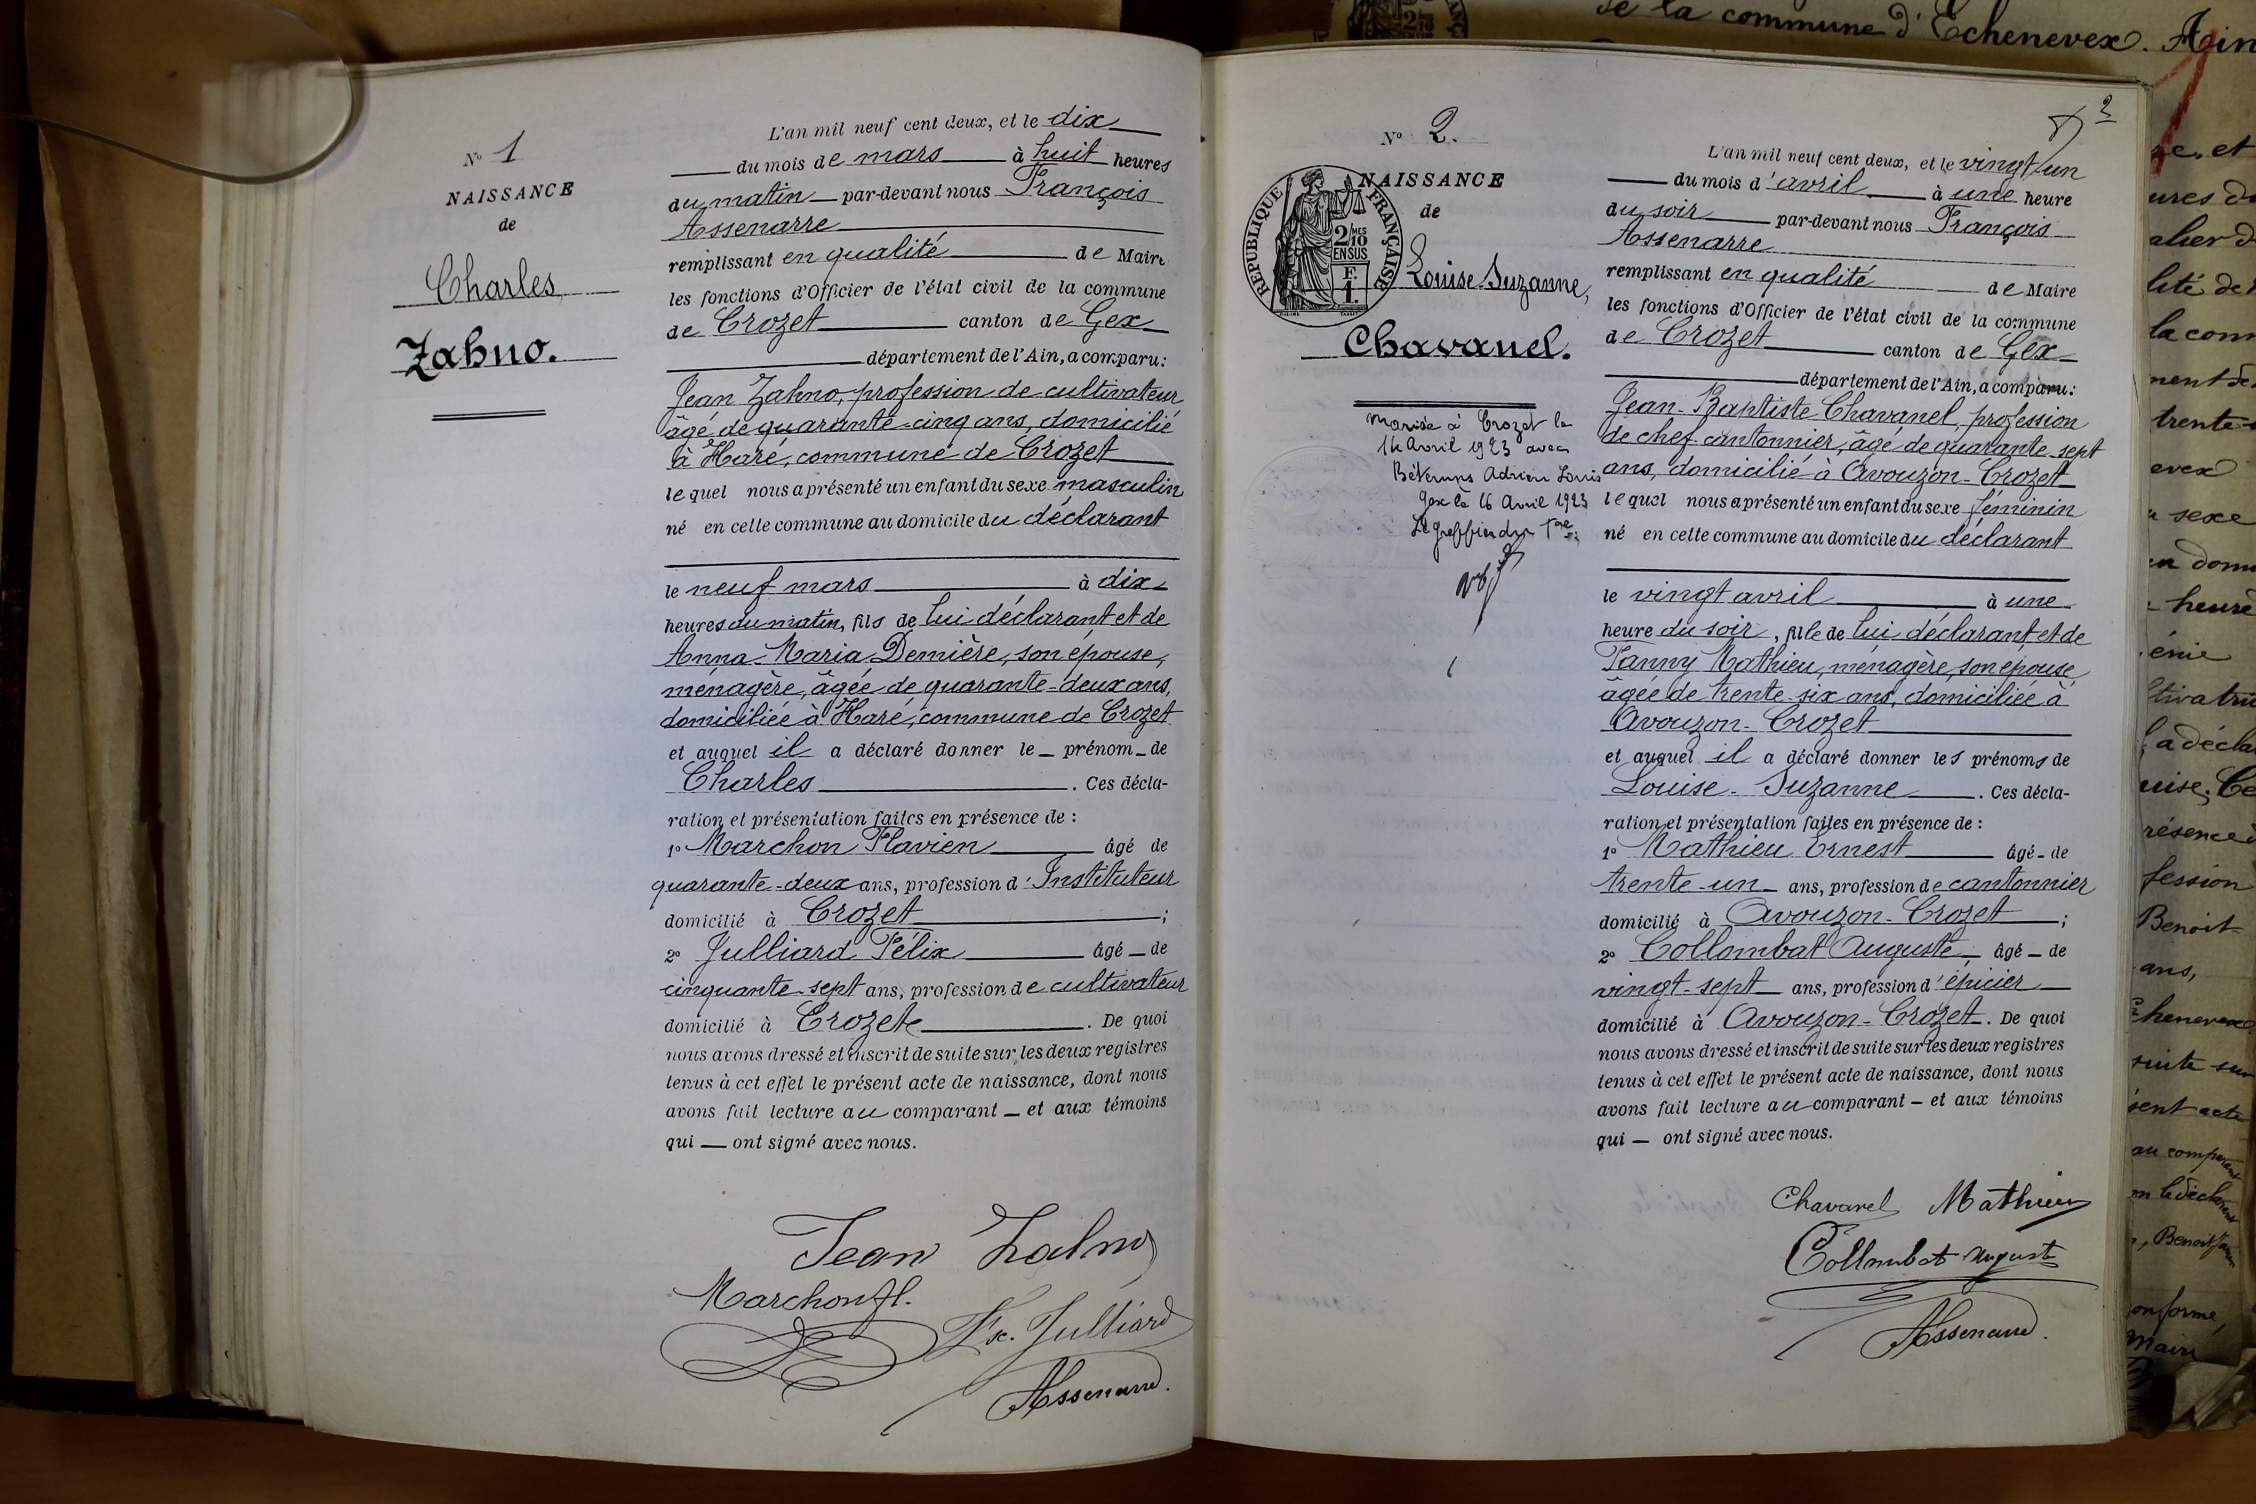 N° 1
NAISSANCE
de
Charles
Zahno.
L'an mil neuf cent deux, et le dix
du mois de mars à huit heures
du matin par-devant nous François
Assenarre
remplissant en qualité de Maire
les fonctions d'Officier de l'état civil de la commune
de Crozet canton de Gex
département de l'Ain, a comparu:
Jean Zahno, profession de cultivateur
âgé de quarante-cinq ans, domicilié
à Haré, commune de Crozet
le quel nous a présenté un enfant du sexe masculin
né en cette commune au domicile du déclarant
le neuf mars à dix
heures du matin, fils de lui déclarant et de
Anna-Maria Demière, son épouse,
ménagère, âgée de quarante-deux ans,
domiciliée à Haré, commune de Crozet
et auquel il a déclaré donner le prénom de
Charles. Ces décla-
ration et présentation faites en présence de :
1° Marchon Flavien âgé de
quarante-deux ans, profession d'Instituteur
domicilié à Crozet ;
2° Julliard Félix âgé de
cinquante-sept ans, profession de cultivateur
domicilié à Crozet. De quoi
nous avons dressé et inscrit de suite sur les deux registres
tenus à cet effet le présent acte de naissance, dont nous
avons fait lecture au comparant — et aux témoins
qui — ont signé avec nous.
Jean Zahno
Marchon fl.
Fx. Julliard
Assenarre.
2
N° 2.
NAISSANCE
de
REPUBLIQUE FRANÇAISE
2/10 MES
EN SUS
F.
1.
Louise Suzanne,
Chavanel.
Mariée à Crozet le
14 Avril 1923 avec
Bétemps Adrien Louis
Gex le 16 Avril 1923
Le greffier du Tal
L'an mil neuf cent deux, et le vingt un
du mois d'avril à une heure
du soir par-devant nous François
Assenarre
remplissant en qualité de Maire
les fonctions d'Officier de l'état civil de la commune
de Crozet canton de Gex
département de l'Ain, a comparu:
Jean-Baptiste Chavanel, profession
de chef-cantonnier, âgé de quarante-sept
ans, domicilié à Avouzon-Crozet
le quel nous a présenté un enfant du sexe féminin
né en cette commune au domicile du déclarant
le vingt avril à une
heure du soir, fille de lui déclarant et de
Fanny Mathieu, ménagère, son épouse
âgée de trente-six ans, domiciliée à
Avouzon-Crozet
et auquel il a déclaré donner les prénoms de
Louise-Suzanne. Ces décla-
ration et présentation faites en présence de :
1° Mathieu Ernest âgé de
trente-un ans, profession de cantonnier
domicilié à Avouzon-Crozet ;
2° Collombat Auguste, âgé de
vingt-sept ans, profession d'épicier
domicilié à Avouzon-Crozet. De quoi
nous avons dressé et inscrit de suite sur les deux registres
tenus à cet effet le présent acte de naissance, dont nous
avons fait lecture au comparant — et aux témoins
qui — ont signé avec nous.
Chavanel Mathieu
Collombat Auguste
Assenarre.
de la commune d'Echenevex. Ain
et
ures du
la com
trente
evex
sexe
heure
énie
a décla
uise. Ce
résence d
fession
Benoit
ans,
chenevex
suite sur
sent acte
au comparant
Benoit
onforme,
Maire